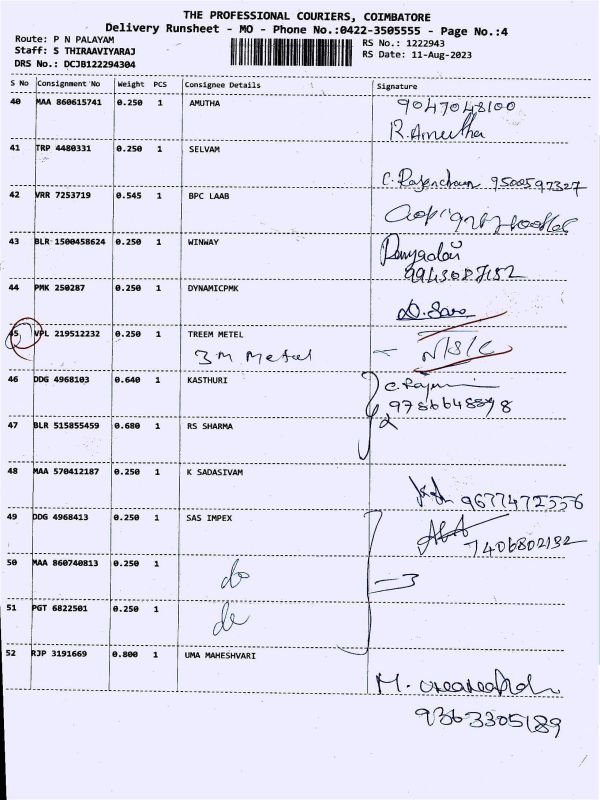 THE PROFESSIONAL COURIERS, COIMBATORE
Delivery Runsheet - MO - Phone No.:0422-3505555 - Page No.:4
Route: P N PALAYAM
Staff: S THIRAAVIYARAJ
DRS No.: DCJB122294304
RS No.: 1222943
RS Date: 11-Aug-2023
S No Consignment No Weight PCS Consignee Details Signature
40 MAA 860615741 0.250 1 AMUTHA 9047048100
R. Amutha
41 TRP 4480331 0.250 1 SELVAM
9500597327
42 VRR 7253719 0.545 1 BPC LAAB
43 BLR 1500458624 0.250 1 WINWAY
9943087152
44 PMK 250287 0.250 1 DYNAMICPMK
45 VPL 219512232 0.250 1 TREEM METEL
3 M Metel - N/S/C
46 DDG 4968103 0.640 1 KASTHURI
47 BLR 515855459 0.680 1 RS SHARMA
48 MAA 570412187 0.250 1 K SADASIVAM
9677472556
49 DDG 4968413 0.250 1 SAS IMPEX
7406802132
50 MAA 860740813 0.250 1 do - 3
51 PGT 6822501 0.250 1 do
52 RJP 3191669 0.800 1 UMA MAHESHVARI
9363305189